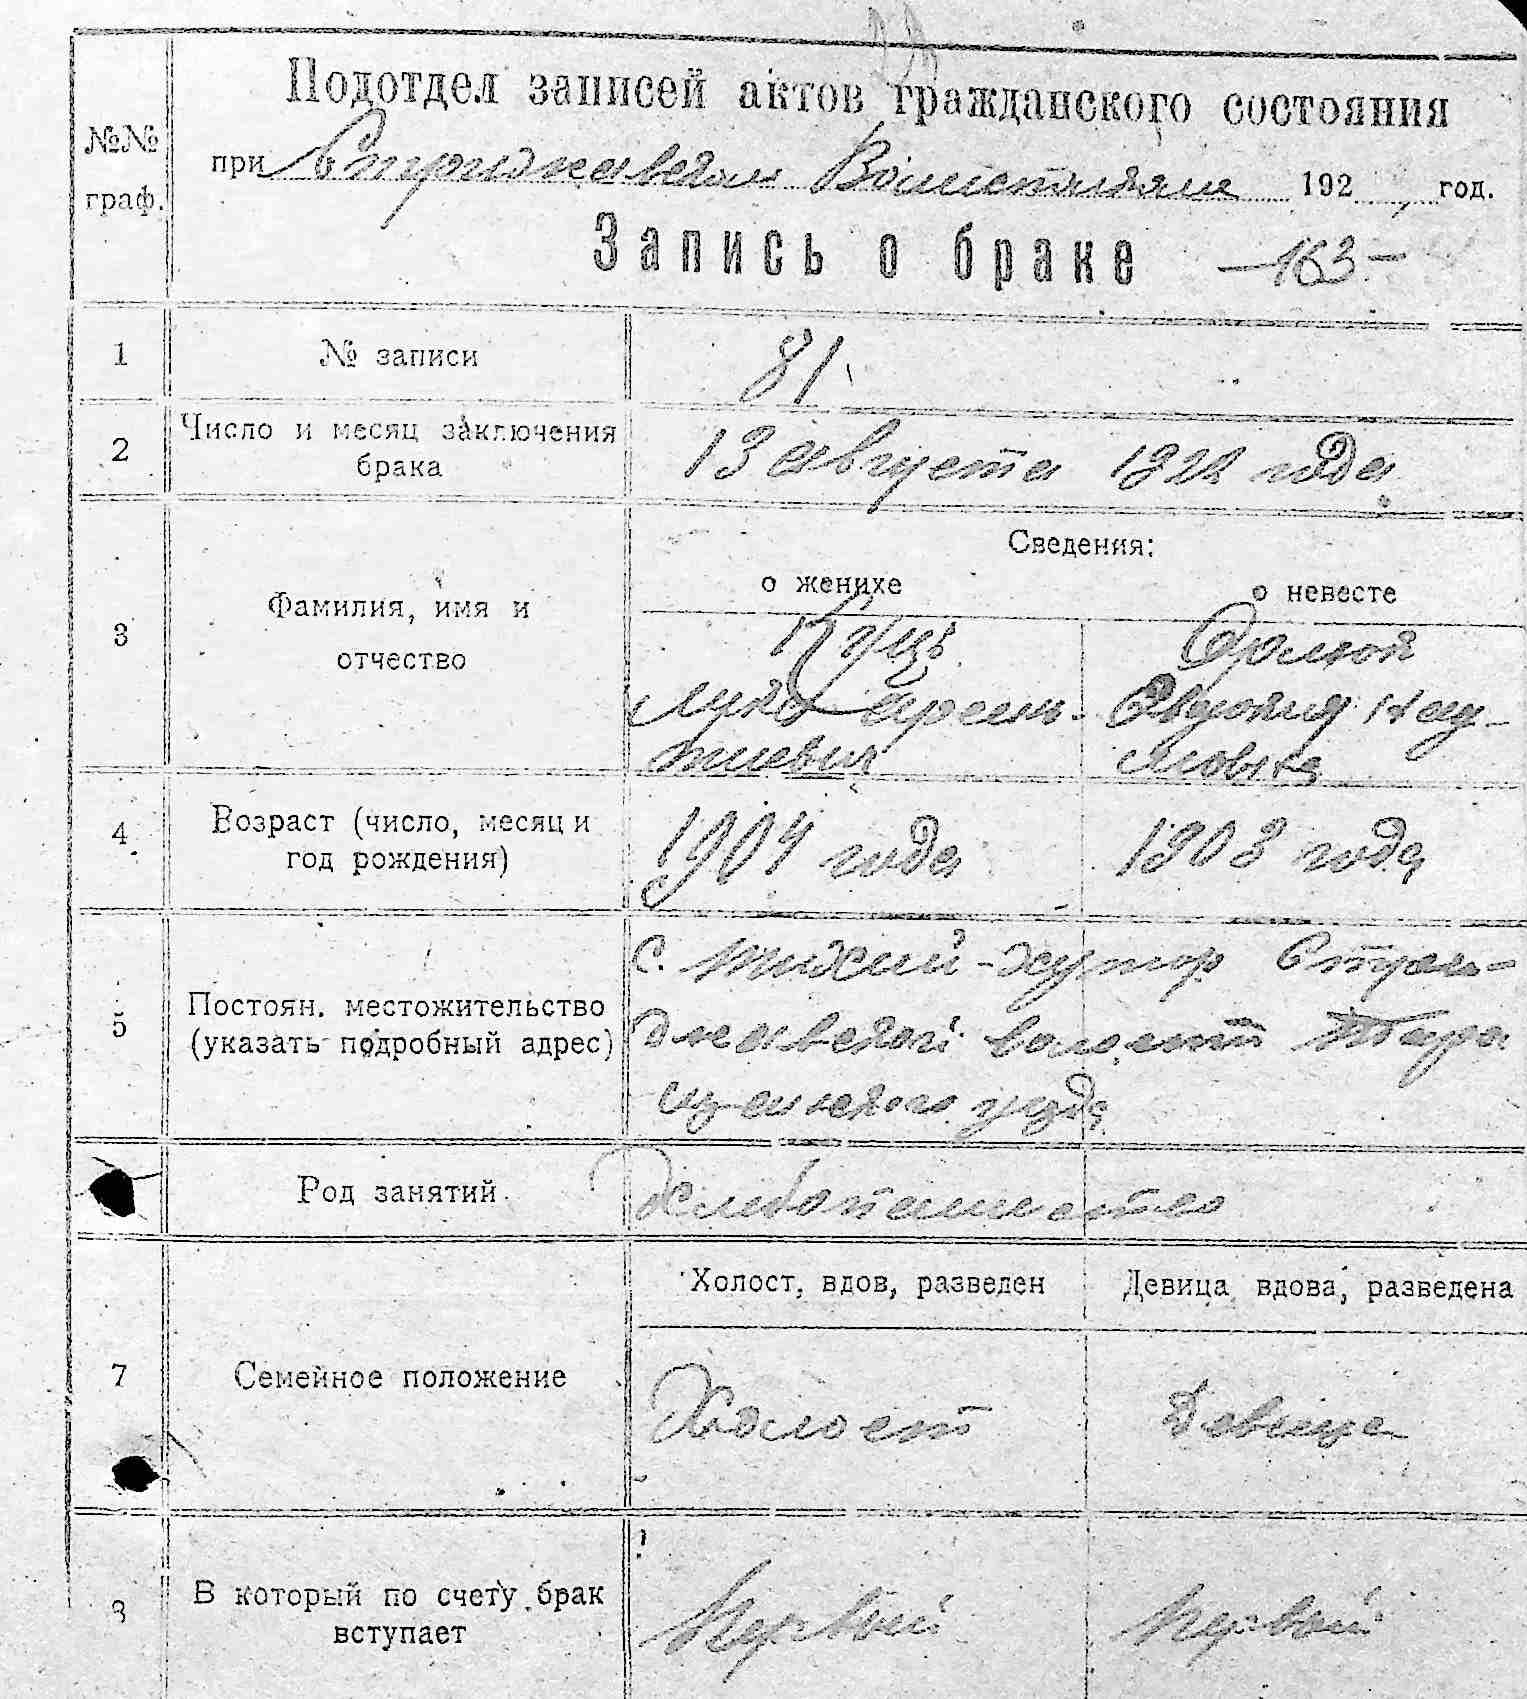 Подотдел записей актов гражданского состояния
№№ граф.
при Стрижавском Волисполкоме 192 год.
Запись о браке -163-
1 № записи 81
2 Число и месяц заключения брака 13 августа 1922 года
Сведения:
о женихе о невесте
3 Фамилия, имя и отчество
Куць
Лука
тиевич
4 Возраст (число, месяц и год рождения) 1904 года 1903 года
5 Постоян. местожительство (указать подробный адрес)
с. Тихий-хутор
волости Тара
щанского
Род занятий. Хлебопашество
Холост, вдов, разведен Девица вдова, разведена
7 Семейное положение Холост Девица
8 В который по счету брак вступает Первый Первый